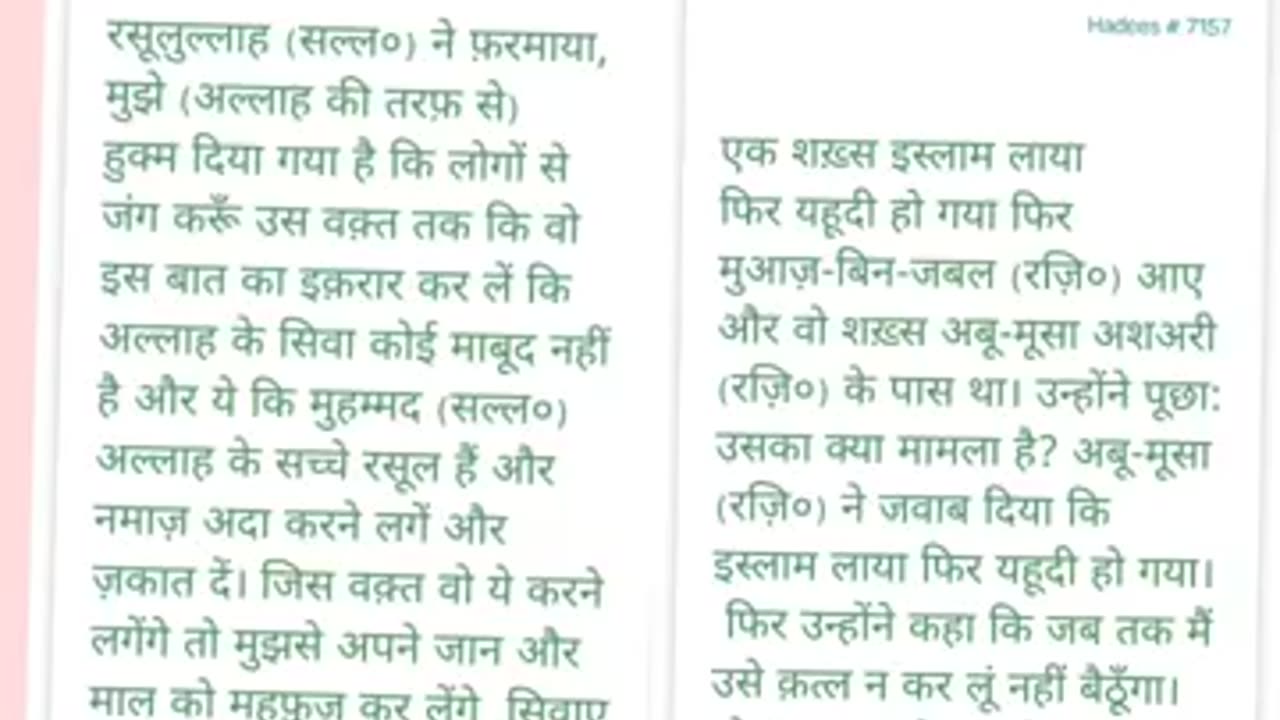 रसूलुल्लाह (सल्ल०) ने फ़रमाया,
मुझे (अल्लाह की तरफ़ से)
हुक्म दिया गया है कि लोगों से
जंग करूँ उस वक़्त तक कि वो
इस बात का इक़रार कर लें कि
अल्लाह के सिवा कोई माबूद नहीं
है और ये कि मुहम्मद (सल्ल०)
अल्लाह के सच्चे रसूल हैं और
नमाज़ अदा करने लगें और
ज़कात दें। जिस वक़्त वो ये करने
लगेंगे तो मुझसे अपने जान और
माल को महफ़ूज़ कर लेंगे सिवाए
Hadees # 7157
एक शख़्स इस्लाम लाया
फिर यहूदी हो गया फिर
मुआज़-बिन-जबल (रज़ि०) आए
और वो शख़्स अबू-मूसा अशअरी
(रज़ि०) के पास था। उन्होंने पूछा:
उसका क्या मामला है? अबू-मूसा
(रज़ि०) ने जवाब दिया कि
इस्लाम लाया फिर यहूदी हो गया।
फिर उन्होंने कहा कि जब तक मैं
उसे क़त्ल न कर लूं नहीं बैठूँगा।